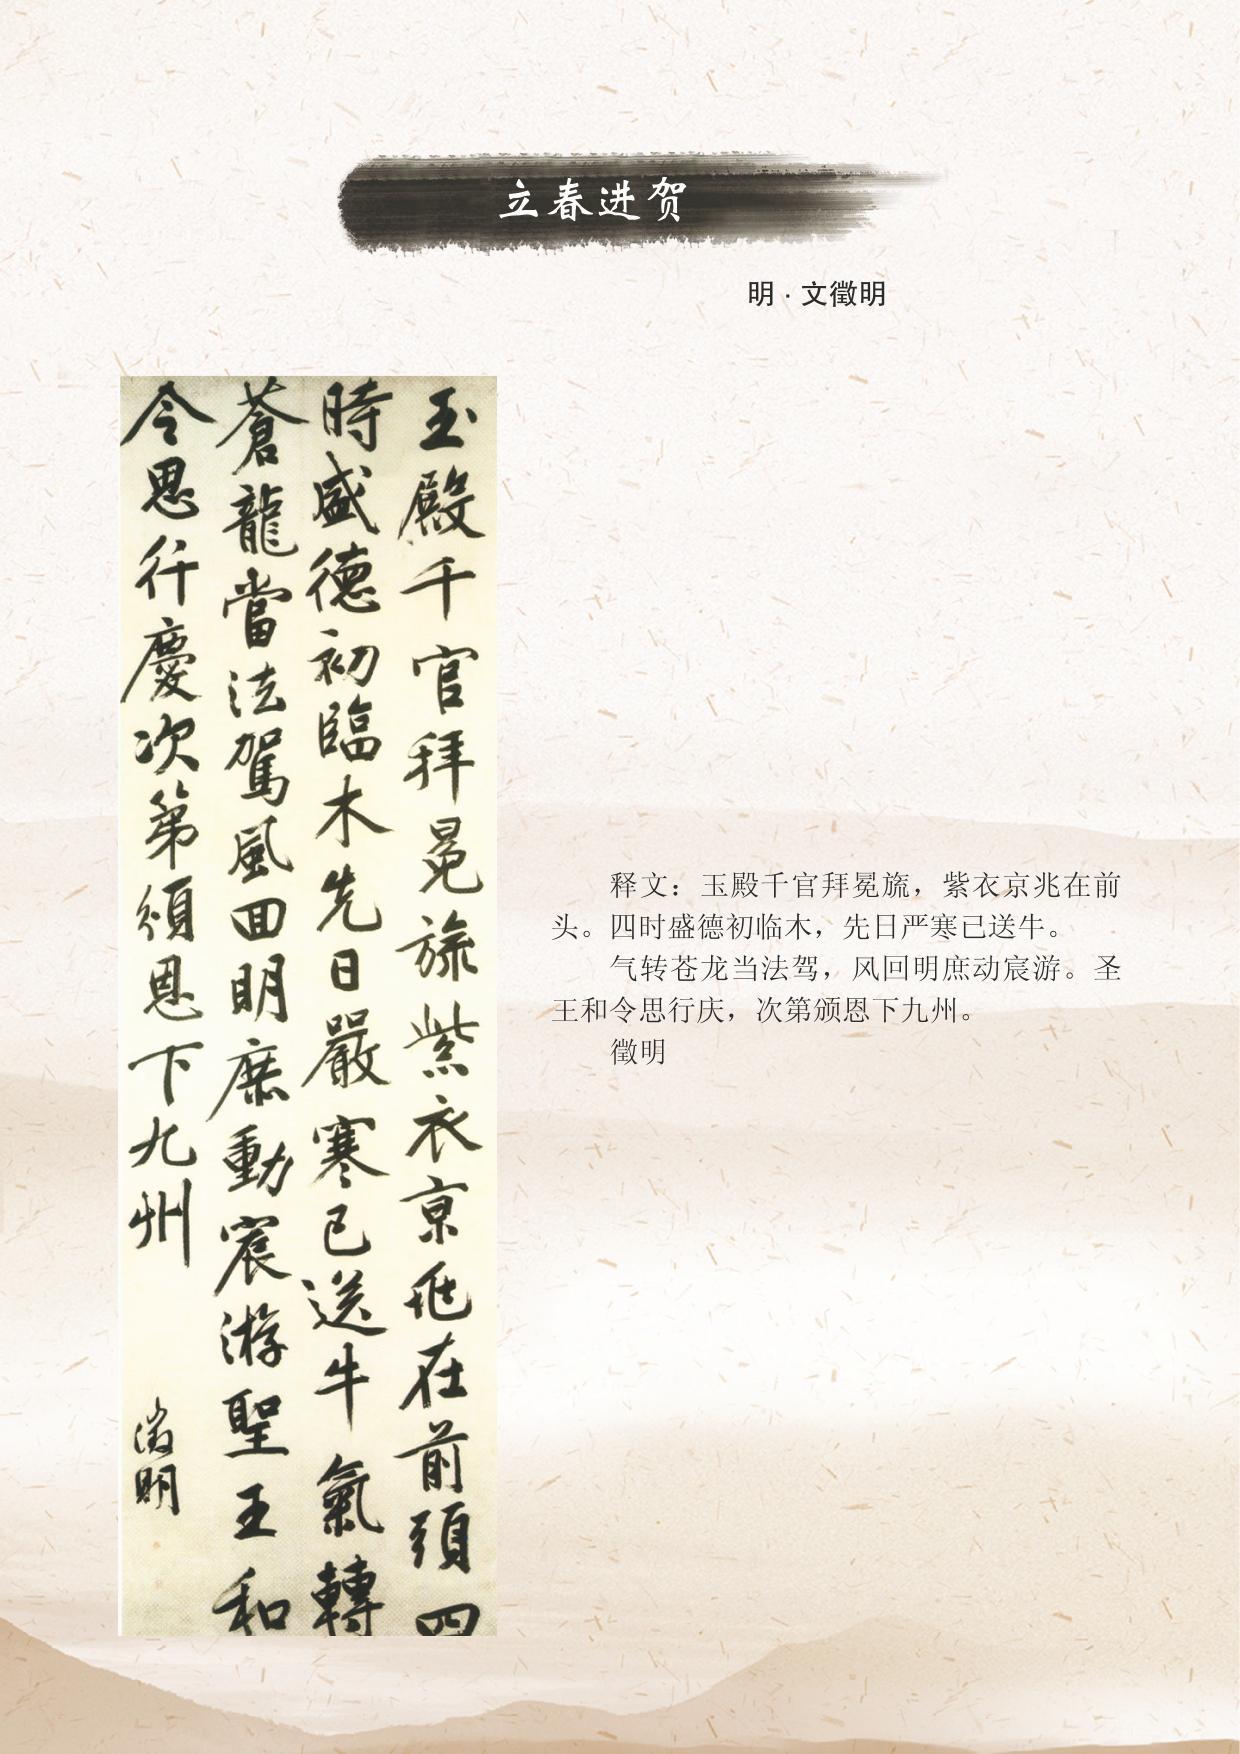 立春进贺
明·文徵明
玉殿千官拜冕旒紫衣京兆在前頭四
時盛德初臨木先日嚴寒已送牛氣轉
蒼龍當法駕風回明庶動宸游聖王和
令思行慶次第頒恩下九州
徵明
释文：玉殿千官拜冕旒，紫衣京兆在前
头。四时盛德初临木，先日严寒已送牛。
气转苍龙当法驾，风回明庶动宸游。圣
王和令思行庆，次第颁恩下九州。
徵明